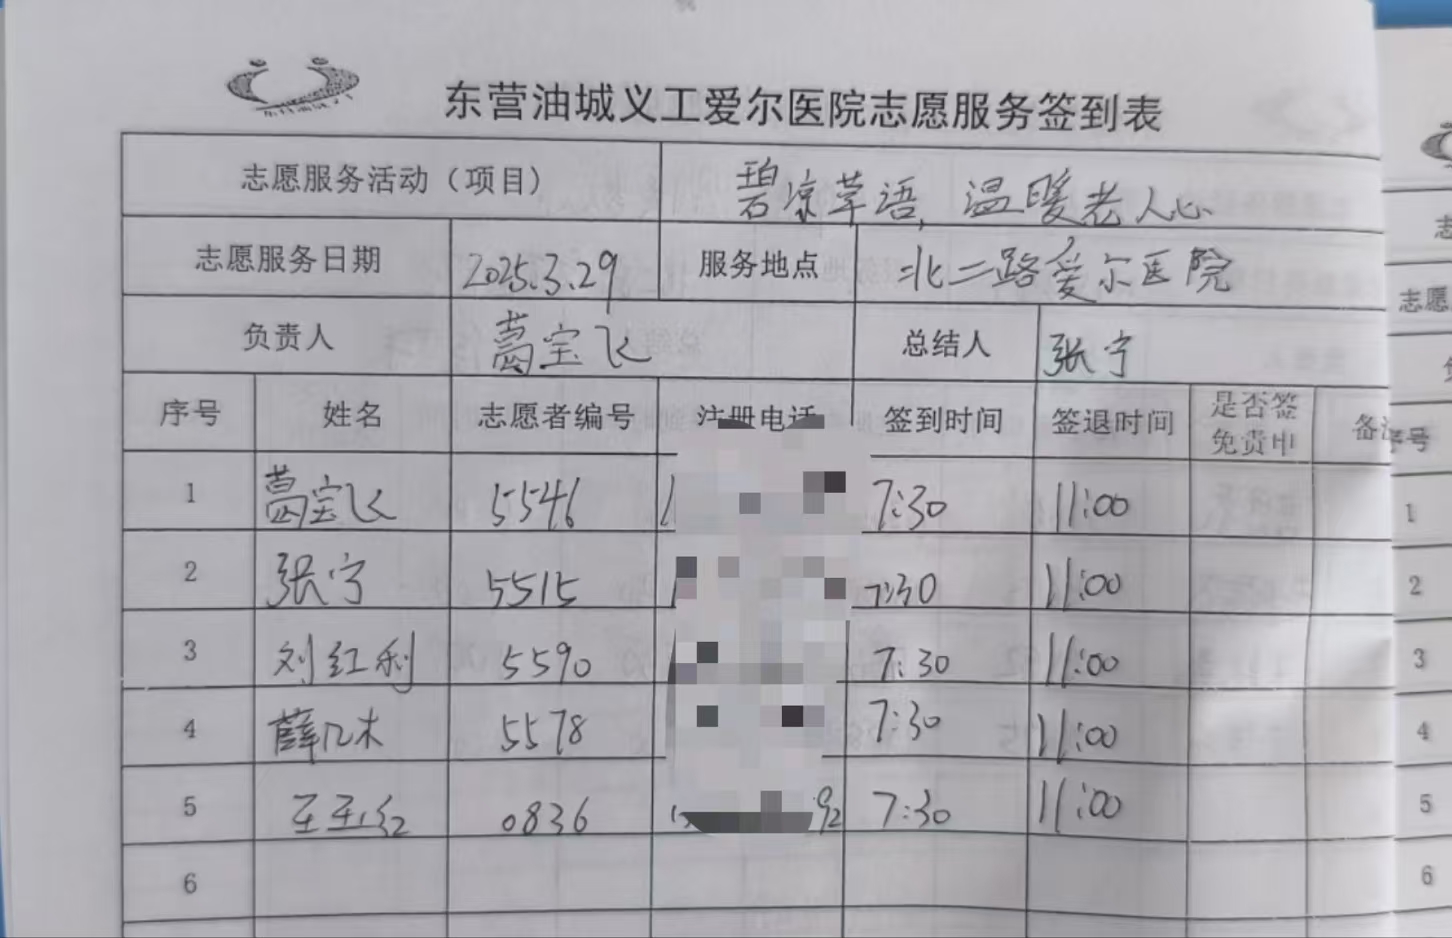 东营油城义工爱尔医院志愿服务签到表
志愿服务活动（项目） 碧凉草语，温暖老人心
志愿服务日期 2025.3.29 服务地点 北二路爱尔医院
负责人 葛宝飞 总结人 张宁
序号 姓名 志愿者编号 注册电话 签到时间 签退时间 是否签免责申 备注
1 葛宝飞 5546 7:30 11:00
2 张宁 5515 7:30 11:00
3 刘红利 5590 7:30 11:00
4 薛几木 5578 7:30 11:00
5 王玉红 0836 92 7:30 11:00
6
志愿
序号
1
2
3
4
5
6